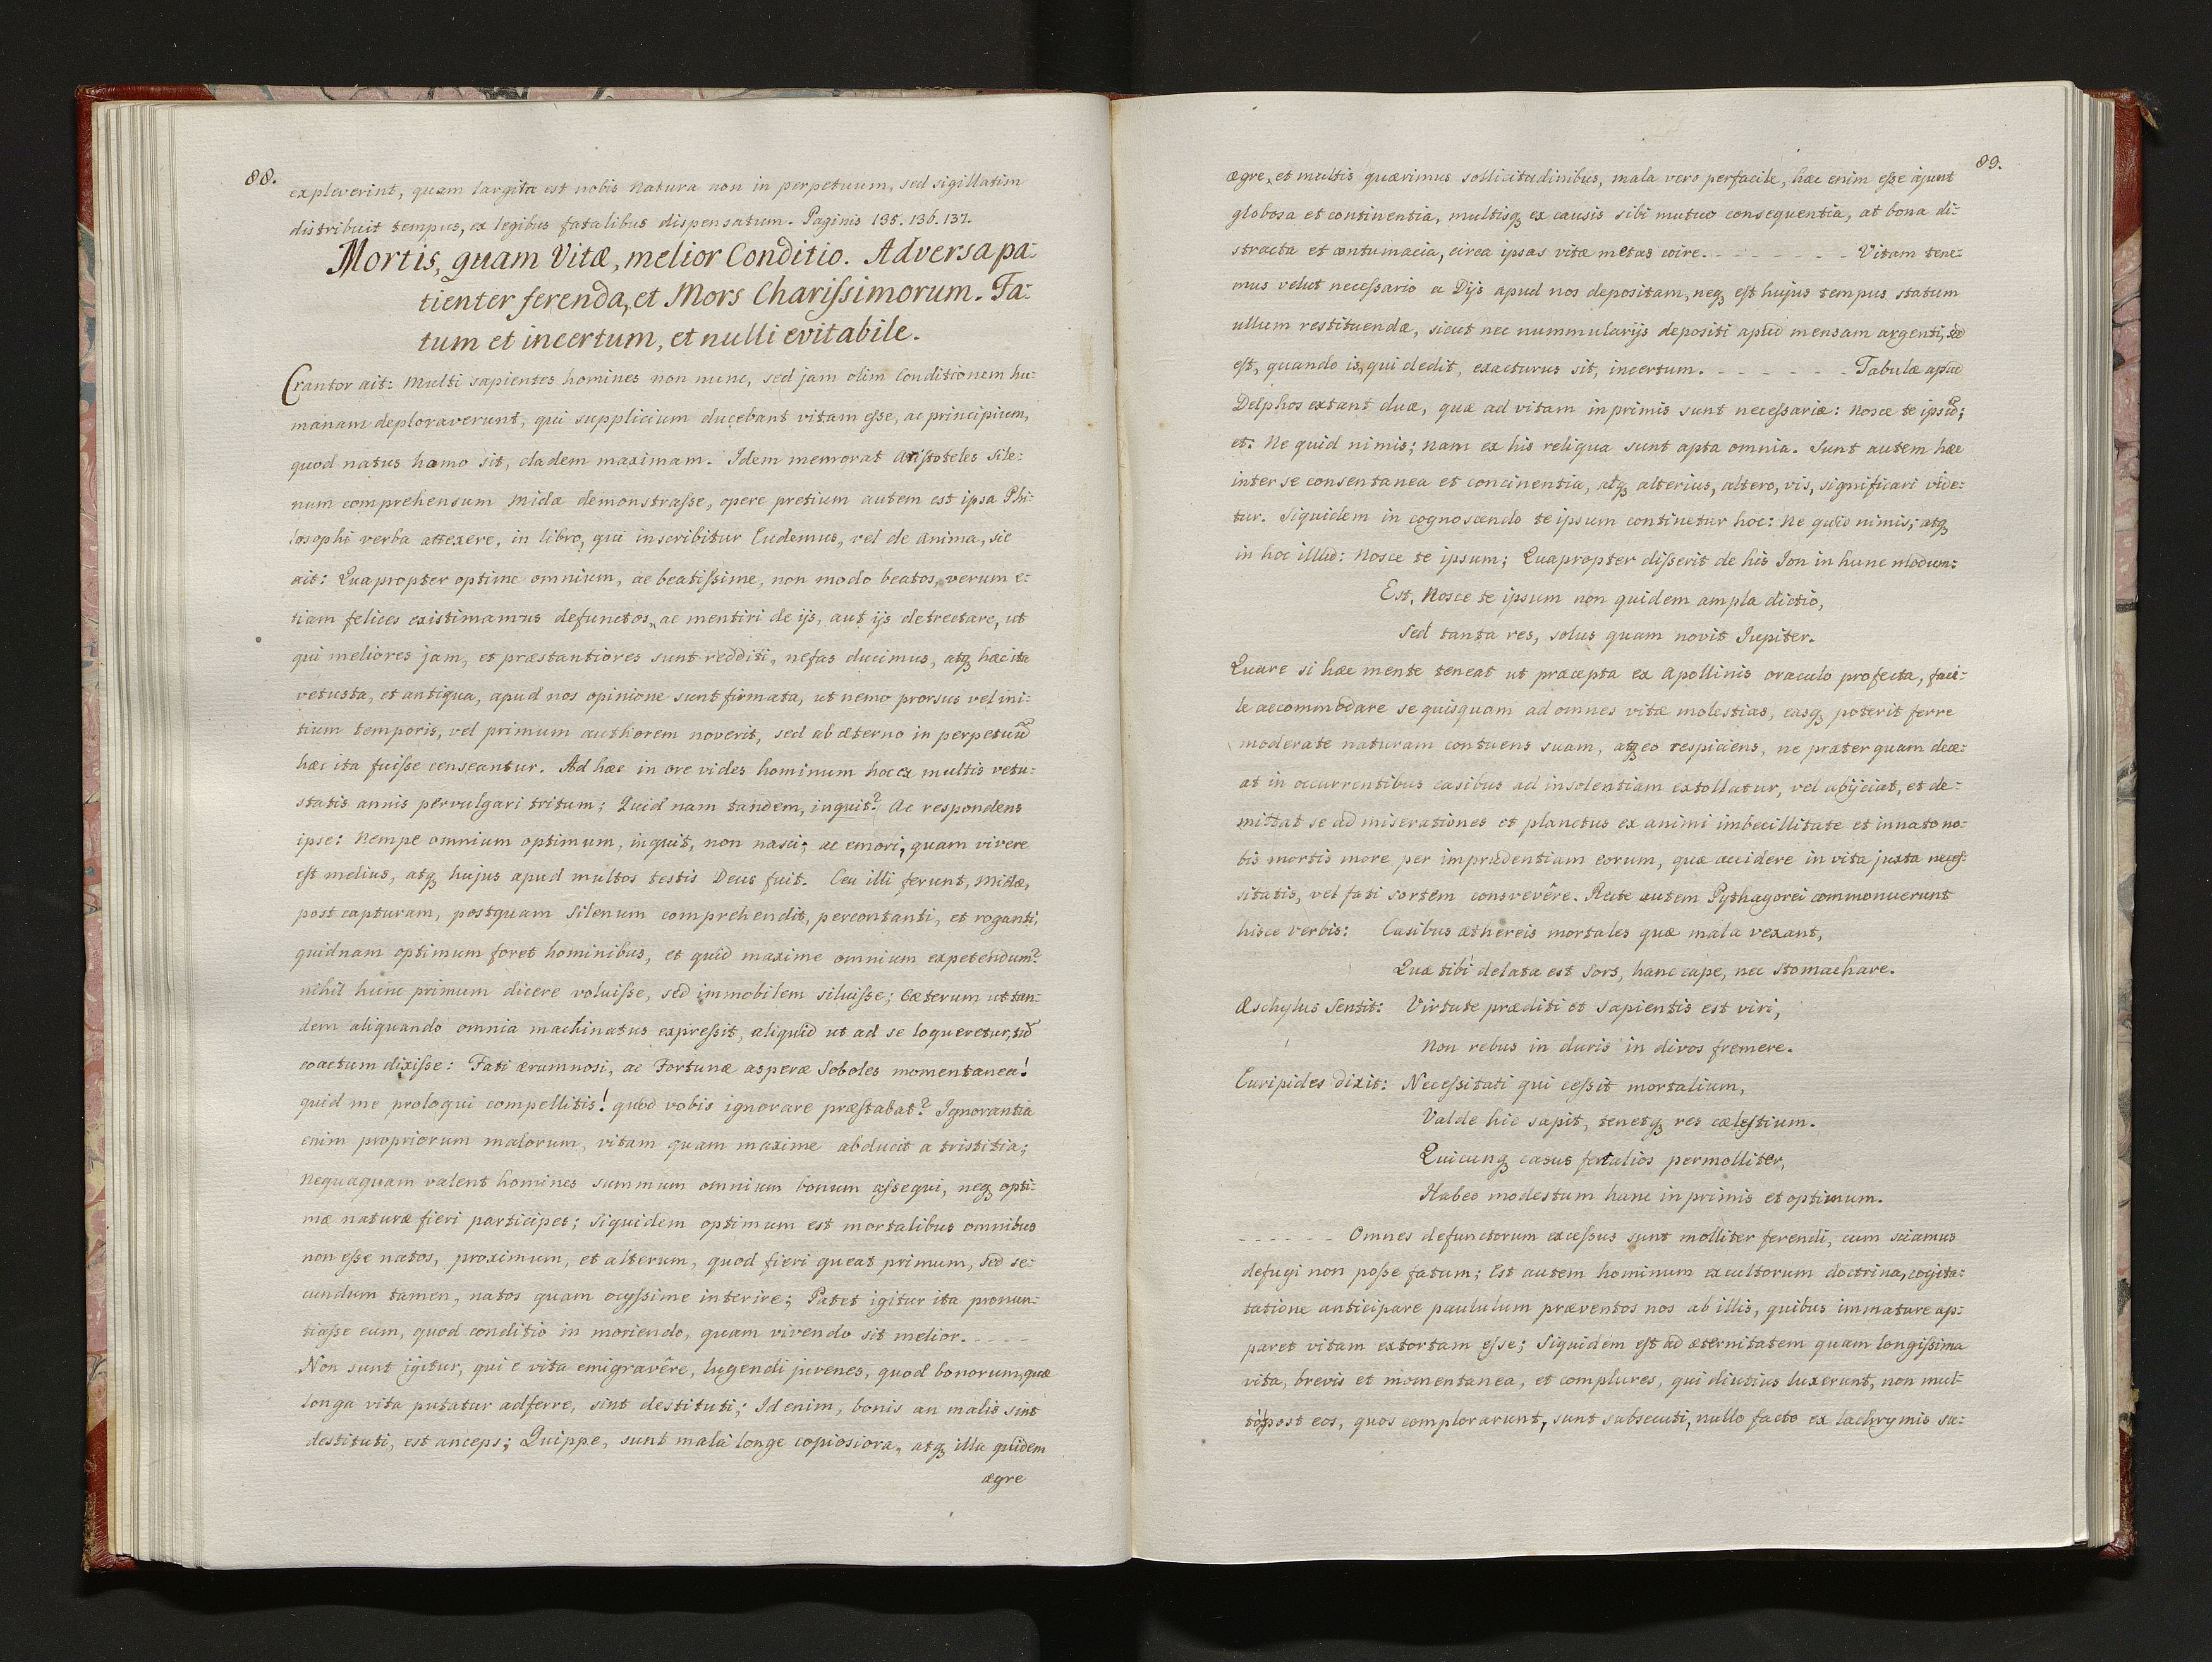 88.
expleverint, quam largita est nobis natura non in perpetuum, sed sigillatim
distribuit tempus, ex legibus fatalibus dispensatum. Paginis 135. 136. 137.
Mortis, quam Vitæ, melior Conditio. Adversa pa:
tienter ferenda, et Mors Charißimorum. Fa:
tum et incertum, et nulli evitabile.
Crantor ait: Multi sapientes homines non nunc, sed jam olim Conditionem hu:
manam deploraverunt, qui supplicium ducebant vitam eße, ac principium,
quod natus homo sit, cladem maximam. Idem memorat Aristoteles Sile:
num comprehensum Midæ demonstraße, opere pretium autem est ipsa Phi:
losophi verba attexere, in libro, qui inscribitur Eudemus, vel de Anima, sic
ait: Quapropter optime omnium, ac beatißime, non modo beatos, verum e:
tiam felices existimamus defunctos, ac mentiri de ijs, aut ijs detrectare, ut
qui meliores jam, et præstantiores sunt redditi, nefas ducimus, atq₃ hæc ita
vetusta, et antiqua, apud nos opinione sunt firmata, ut nemo prorsus vel ini:
tium temporis, vel primum authorem noverit, sed ab æterno in perpetuũ
hæc ita fuiße censeantur. Ad hæc in ore vides hominum hoc ex multis vetu:
statis annis pervulgari tritum; Quid nam tandem, inquit? Ac respondens
ipse: Nempe omnium optimum, inquit, non nasci; ac emori, quam vivere
est melius, atq₃ hujus apud multos testis Deus fuit. Ceu illi ferunt, Midæ,
post capturam, postquam Silenum comprehendit, percontanti, et roganti,
quidnam optimum foret hominibus, et quid maxime omnium expetendum?
nihil hunc primum dicere voluiße, sed immobilem siluiße; Cæterum ut tan:
dem aliquando omnia machinatus expreßit, aliquid ut ad se loqueretur, tũ
coactum dixiße: Fati ærumnosi, ac Fortunæ asperæ Soboles momentanea!
quid me proloqui compellitis! quod vobis ignorare præstabat? Ignorantia
enim propriorum malorum, vitam quam maxime abducit a tristitia;
Nequaquam valent homines summum omnium bonum aßequi, neq₃ opti:
mæ naturæ fieri participes; Siquidem optimum est mortalibus omnibus
non eße natos, proximum, et alterum, quod fieri queat primum, sed se:
cundum tamen, natos quam ocyßime interire; Patet igitur ita pronun:
tiaße eum, quod conditio in moriendo, quam vivendo sit melior. - - - -
Non sunt igitur, qui e vita emigravêre, lugendi juvenes, quod bonorum, quæ
longa vita putatur adferre, sint destituti; Id enim, bonis an malis sint
destituti, est anceps; Quippe, sunt mala longe copiosiora, atq₃ illa quidem
ægre
89.
ægre, et multis quærimus sollicitudinibus, mala vero perfacile, hæc enim eße ajunt
globosa et continentia, multisq₃ ex causis sibi mutuo consequentia, at bona di:
stracta et contumacia, circa ipsas vitæ metas coire. - - - - - - - Vitam tene:
mus velut neceßario a Dijs apud nos depositam, neq₃ est hujus tempus statum
ullum restituendæ, sicut nec nummularijs depositi apud mensam argenti, sed
est, quando is, qui dedit, exacturus sit, incertum. - - - - - - Tabulæ apud
Delphos extant duæ, quæ ad vitam inprimis sunt neceßariæ: Nosce te ipsũ;
et: Ne quid nimis; Nam ex his reliqua sunt apta omnia. Sunt autem hæc
inter se consentanea et concinentia, atq₃ alterius, altero, vis, significari vide:
tur. Siquidem in cognoscendo te ipsum continetur hoc: Ne quid nimis; atq₃
in hoc illud: Nosce te ipsum; Quapropter dißerit de his Ion in hunc modum:
Est, Nosce te ipsum non quidem ampla dictio,
Sed tanta res, solus quam novit Jupiter.
Quare si hæc mente teneat ut præcepta ex Apollinis oraculo profecta, faci:
le accommodare se quisquam ad omnes vitæ molestias, easq₃ poterit ferre
moderate naturam contuens suam, atq₃ eo respiciens, ne præter quam dece:
at in occurrentibus casibus ad insolentiam extollatur, vel abijciat, et de:
mittat se ad miserationes et planctus ex animi imbecillitate et innato no:
bis mortis more per imprudentiam eorum, quæ accidere in vita juxta neceß:
sitatis, vel fati sortem consvevêre. Recte autem Pythagorei commonuerunt
hisce verbis: Casibus æthereis mortales quæ mala vexant,
Quæ tibi delata est Sors, hanc cape, nec stomachare.
Æschylus Sentit: Virtute præditi et Sapientis est viri,
Non rebus in duris in divos fremere.
Euripides dixit: Neceßitati qui ceßit mortalium,
Valde hic sapit, tenetq₃ res cælestium.
Quicunq₃ casus fert alios permolliter,
Habeo modestum hunc inprimis et optimum.
- - - - - - Omnes defunctorum exceßus sunt molliter ferendi, cum sciamus
defugi non poße fatum; Est autem hominum excultorum doctrina, cogita:
tatione anticipare paululum præventos nos ab illis, quibus immature ap:
paret vitam extortam eße; Siquidem est ad æternitatem quam longißima
vita, brevis et momentanea, et complures, qui diutius luxerunt, non mul:
to post eos, quos complorarunt, sunt subsecuti, nullo facto ex lachrymis su: